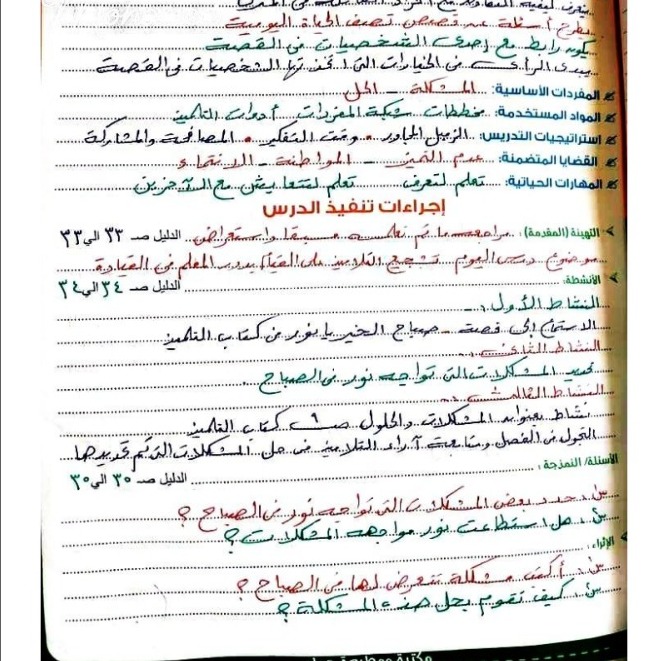 يطرح أسئلة عن قصص تصف الحياة اليومية
يكون رابط مع إحدى الشخصيات في القصة
يبدى الرأى فى الخيارات التى اتخذتها الشخصيات فى القصة
المفردات الأساسية: المشكلة - الحل
المواد المستخدمة: مخططات شبكة المفردات أدوات التلميذ
استراتيجيات التدريس: الزميل المجاور • وقت التفكير • المصافحة والمشاركة
القضايا المتضمنة: عدم التميز - المواطنة - الانتماء
المهارات الحياتية: تعلم لتعرف تعلم لتتعايش مع الآخرين
إجراءات تنفيذ الدرس
التهيئة (المقدمة): مراجعة ما تم تعلمه مسبقا واستعراض الدليل صـ ٣٣ الي ٣٣
موضوع درس اليوم تشجيع التلاميذ على القيام بدور المعلم فى القيادة
الأنشطة: الدليل صـ ٣٤ الي ٣٤
النشاط الأول :-
الاستماع إلى قصة - صباح الخير يا نور من كتاب التلميذ
النشاط الثانى :-
تحديد المشكلات التى تواجه نور فى الصباح .
النشاط الثالث :-
نشاط بعنوان المشكلات والحلول صـ ٩ كتاب التلميذ
التجول فى الفصل ومتابعة آراء التلاميذ فى حل المشكلات التى تم تحديدها
الأسئلة/ النمذجة: الدليل صـ ٣٥ الي ٣٥
س١: حدد بعض المشكلات التى تواجه نور فى الصباح ؟
س٢: هل استطاعت نور مواجهة المشكلات ؟
الإثراء:
س١: أكتب مشكلة تتعرض لها فى الصباح ؟
س٢: كيف تقوم بحل هذه المشكلة ؟